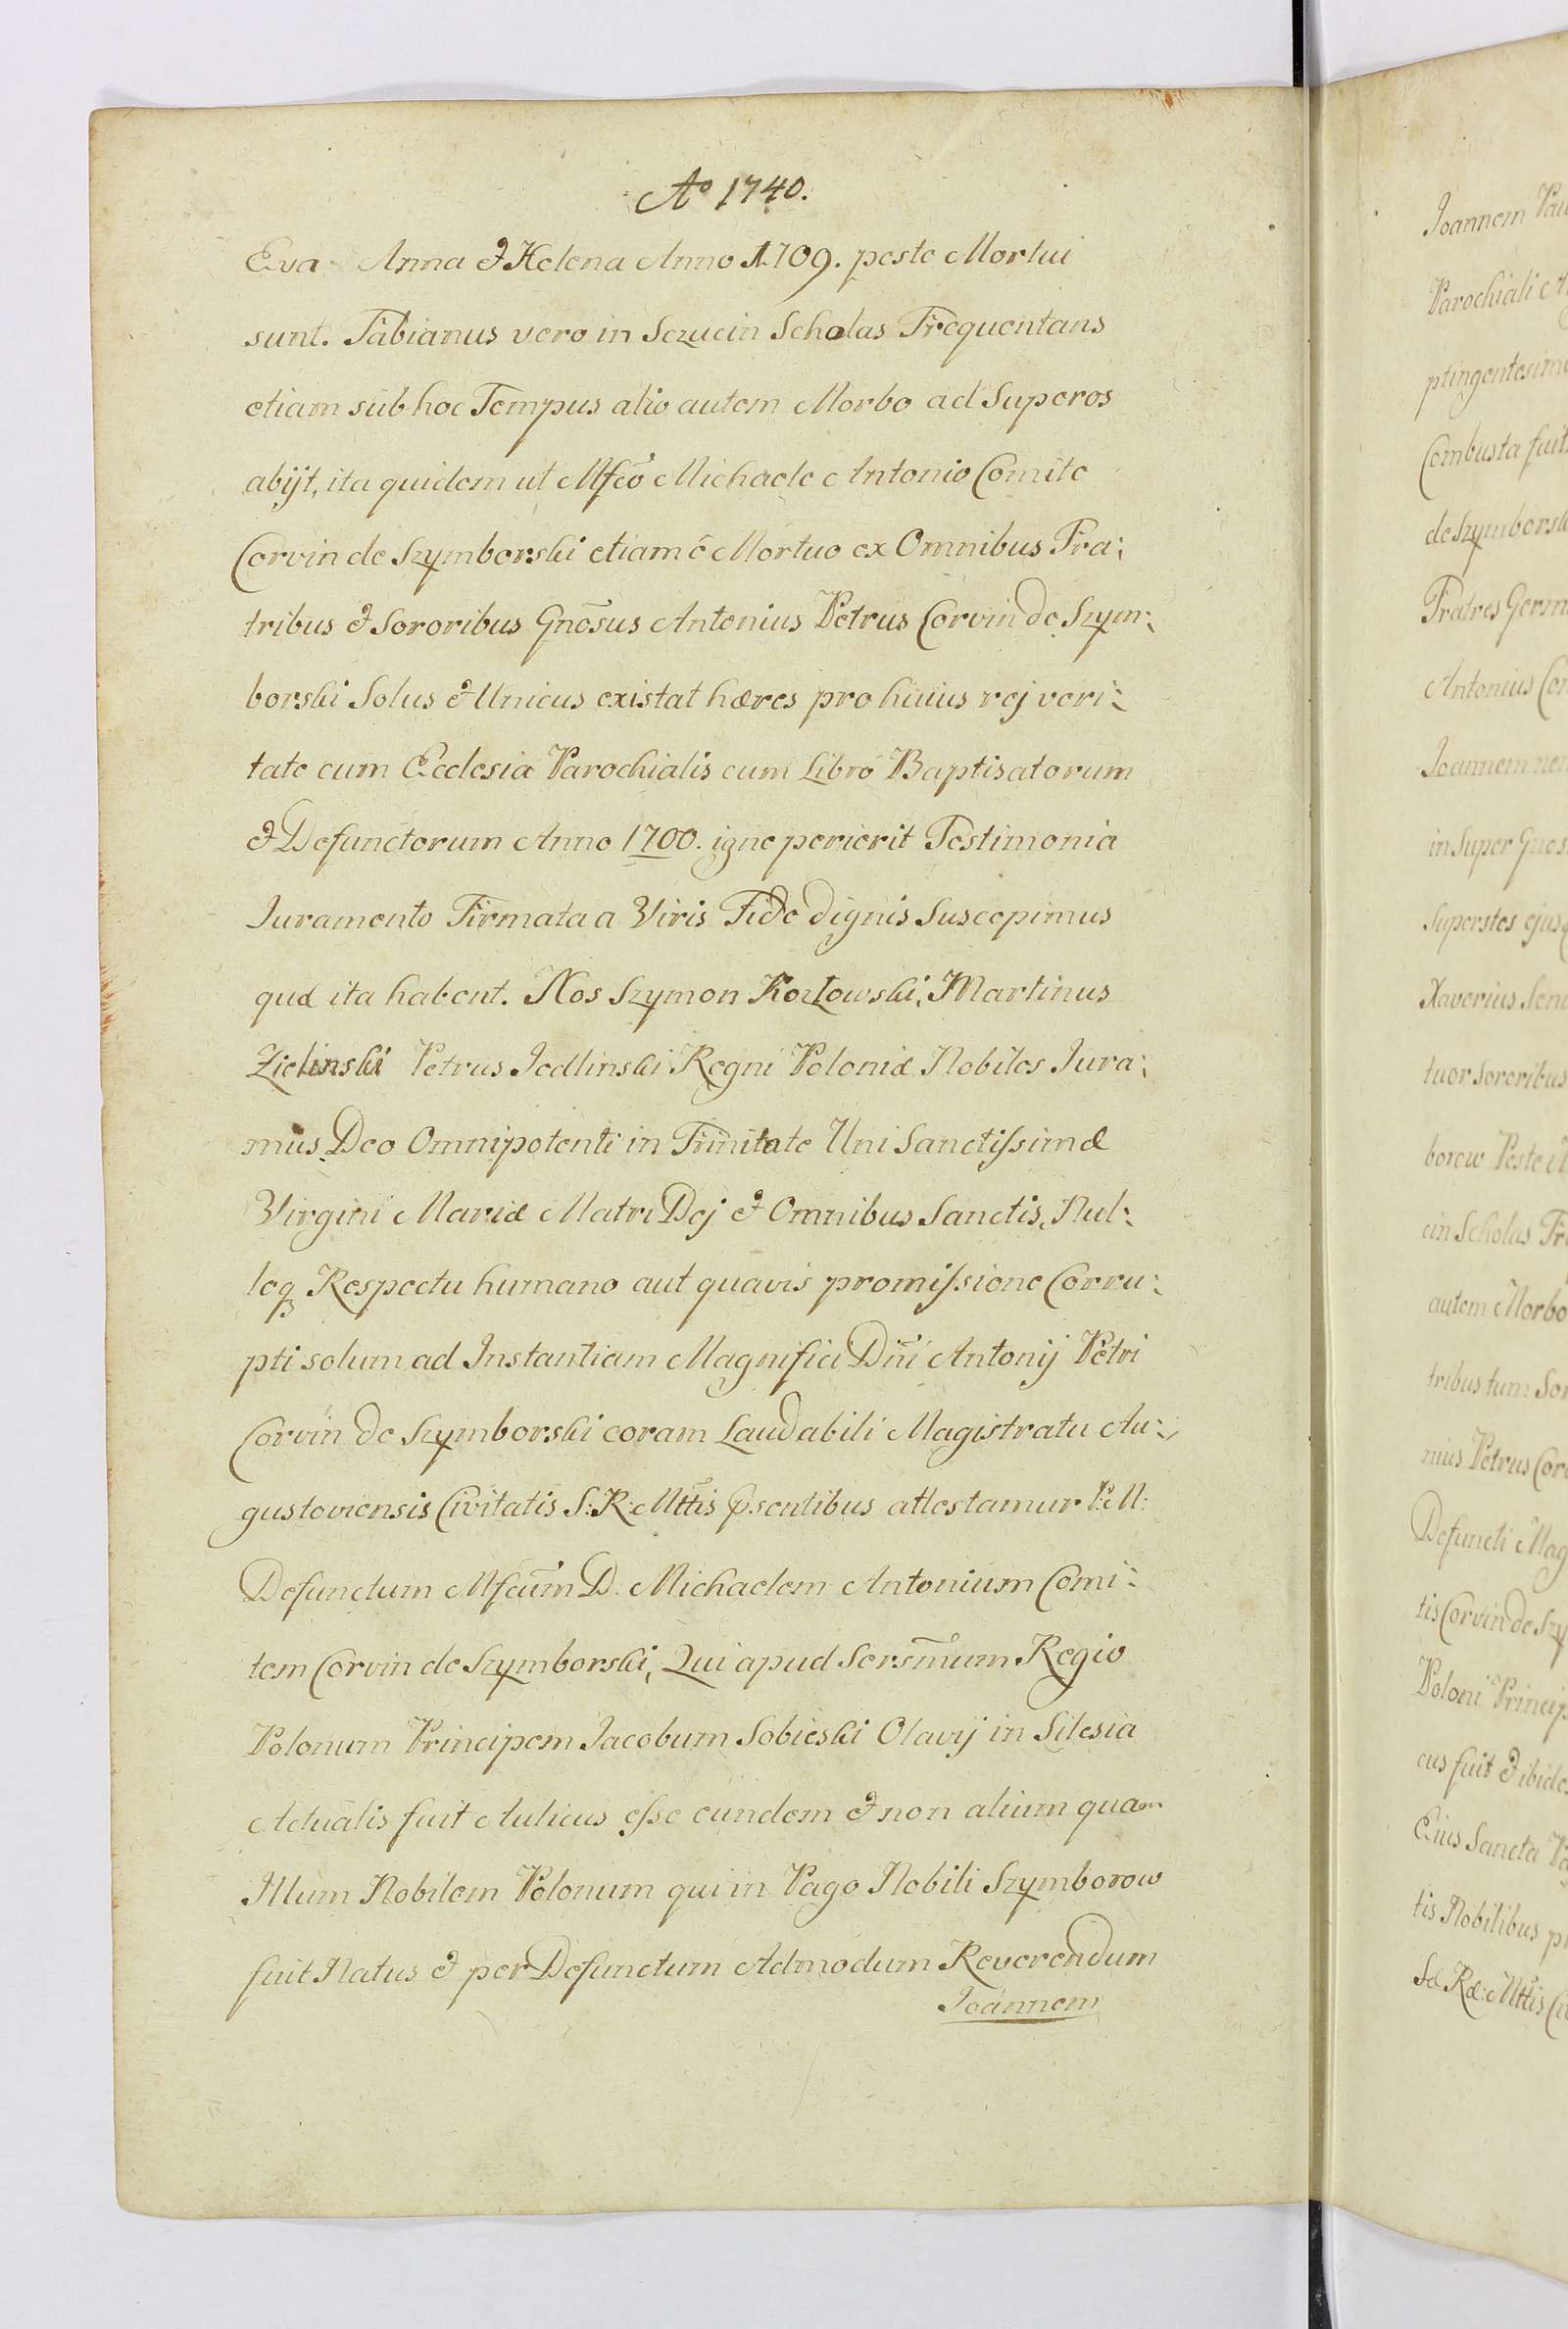 Ao 1740.
Eva Anna & Helena Anno 1709. peste Mortui
sunt. Fabianus vero in Sczucin Scholas Frequentans
etiam sub hoc Tempus alio autem Morbo ad Superos
abijt, ita quidem ut Mfco Michaele Antonio Comite
Corvin de Szymborski etiam e Mortuo ex Omnibus Fra:
tribus & Sororibus Gnosus Antonius Petrus Corvin de Szym:
borski Solus & Unicus existat hæres pro huius rej veri:
tate cum Ecclesia Parochialis cum Libro Baptisatorum
& Defunctorum Anno 1700. igne perierit Testimonia
Juramento Firmata a Viris Fide dignis Suscepimus
quæ ita habent. Nos Szymon Kozłowski, Martinus
Zielinski Petrus Jedlinski Regni Poloniæ Nobiles Jura:
mus Deo Omnipotenti in Trinitate Uni Sanctissimæ
Virgini Mariæ Matri Dej & Omnibus Sanctis, Nul:
loq Respectu humano aut quavis promissione Corru:
pti solum ad Instantiam Magnifici Dni Antonij Petri
Corvin de Szymborski coram Laudabili Magistratu Au:
gustoviensis Civitatis S: R: Mttis psentibus attestamur P: M:
Defunctum Mfcum D. Michaelem Antonium Comi:
tem Corvin de Szymborski, Qui apud Sersmum Regio
Polonum Principem Jacobum Sobieski Olavij in Silesia
Actualis fuit Aulicus esse eundem & non alium quam
Illum Nobilem Polonum qui in Pago Nobili Szymborow
fuit Natus & per Defunctum Admodum Reverendum
Joannem
Joannem
Parochiali
ptingentesim
Combusta fuit
de Szymborsk
Fratres Germ
Antonius
Joannem
in Super
Superstes ejusq
Xaverius
tuor Sororibus
borow Peste
cin Scholas
autem Morbo
tribus tum
nius Petrus
Defuncti Mag
tis Corvin de Szy
Poloni Princip
cus fuit & ibide
Eius Sancta
tis Nobilibus
Sæ Ræ: Mttis